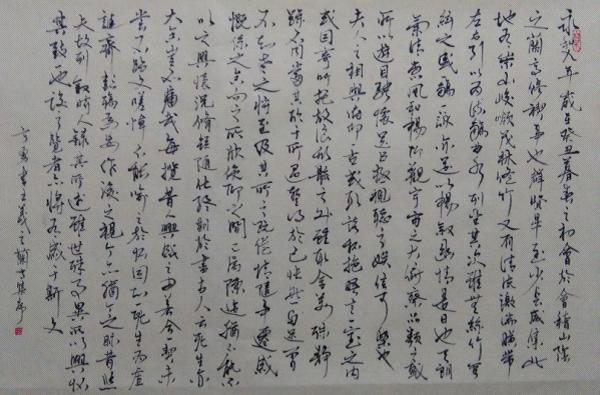 永和九年歲在癸丑暮春之初會於會稽山陰
之蘭亭修禊事也群賢畢至少長咸集此
地有崇山峻嶺茂林脩竹又有清流激湍映帶
左右引以為流觴曲水列坐其次雖無絲竹管
絃之盛一觴一詠亦足以暢敘幽情是日也天朗
氣清惠風和暢仰觀宇宙之大俯察品類之盛
所以遊目騁懷足以極視聽之娛信可樂也
夫人之相與俯仰一世或取諸懷抱晤言一室之內
或因寄所託放浪形骸之外雖趣舍萬殊靜
躁不同當其欣於所遇暫得於己快然自足曾
不知老之將至及其所之既倦情隨事遷感
慨係之矣向之所欣俛仰之間以為陳迹猶不能不
以之興懷況脩短隨化終期於盡古人云死生亦
大矣豈不痛哉每攬昔人興感之由若合一契未
嘗不臨文嗟悼不能喻之於懷固知一死生為虛
誕齊彭殤為妄作後之視今亦猶今之視昔悲
夫故列敘時人錄其所述雖世殊事異所以興懷
其致一也後之覽者亦將有感於斯文
書王羲之蘭亭集序